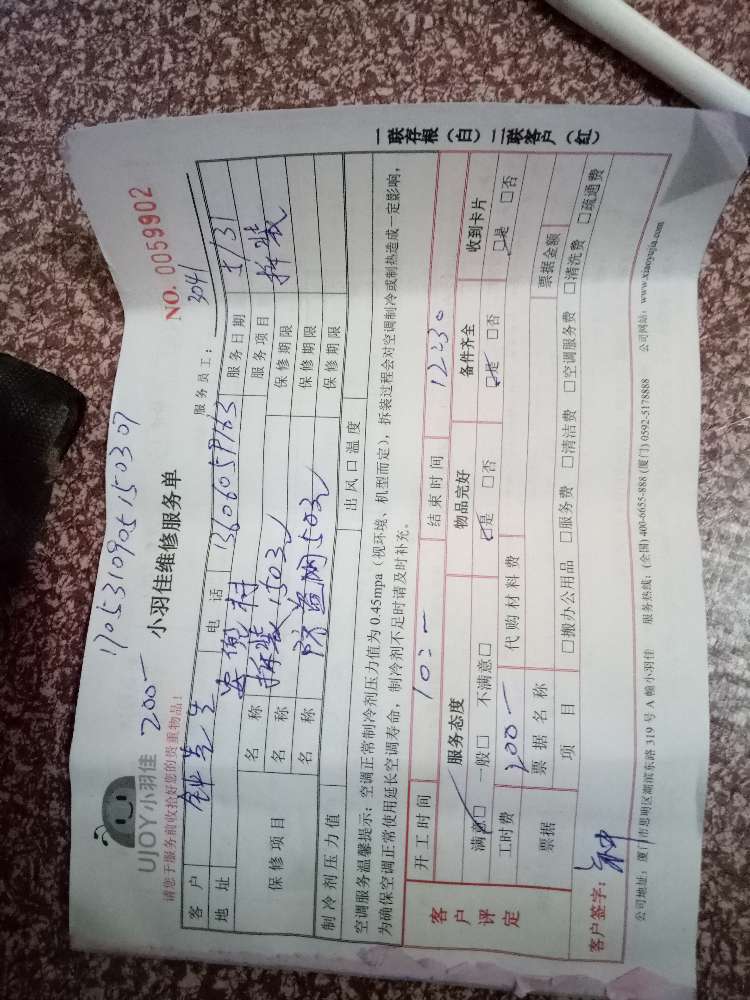 170531090515 0307
UIOY小羽佳 200一 小羽佳维修服务单 NO. 0059902
请您于服务前收拾好您的贵重物品！ 服务员工： 3041
客户 钟先生 电话 服务日期 5/31
地址 服务项目 拆装
保修项目 名称 拆装1503 保修期限
名称 防盗网503 保修期限
名称 保修期限
制冷剂压力值 出风口温度
空调服务温馨提示：空调正常制冷剂压力值为 0.45mpa（视环境、机型而定），拆装过程会对空调制冷或制热造成一定影响，
为确保空调正常使用延长空调寿命，制冷剂不足时请及时补充。
客户评定
开工时间 10:一 结束时间 12:30
服务态度 物品完好 备件齐全 收到卡片
满意□ 一般□ 不满意□ □是 □否 □是 □否 □是 □否
工时费 200一 代购材料费
票据 票据名称 票据金额
项目 □搬办公用品 □服务费 □清洁费 □空调服务费 □清洗费 □疏通费
客户签字： 钟
公司地址：厦门市思明区湖滨东路 319 号 A 幢小羽佳 服务热线：(全国) 400-6655-888 (厦门) 0592-5178888 公司网站：www.xiaoyujia.com
一联存根（白）二联客户（红）